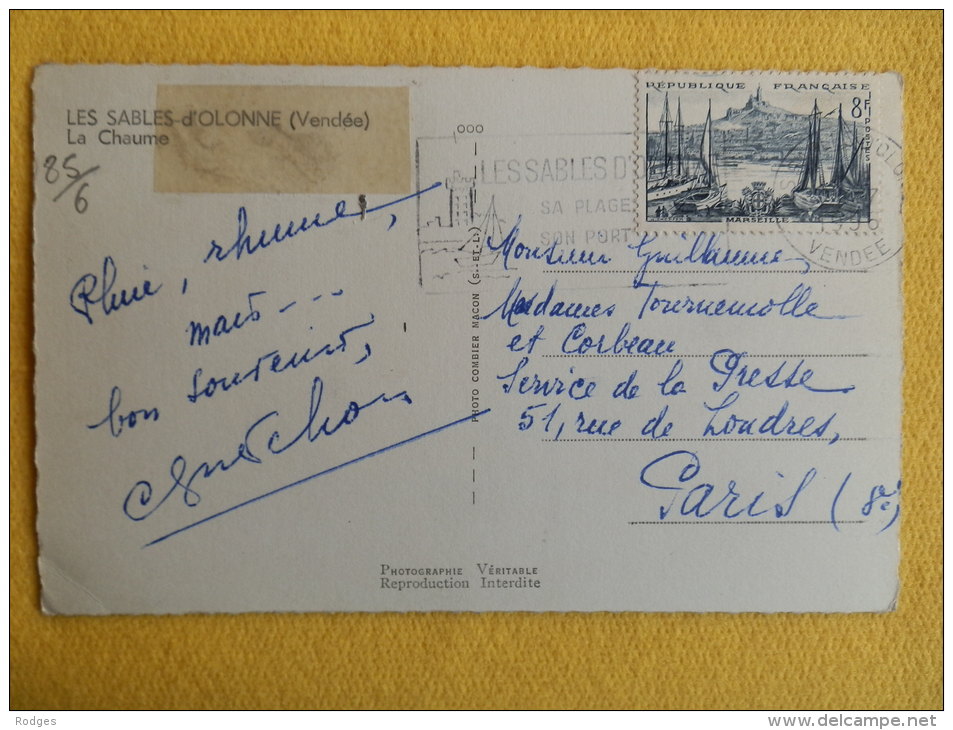 LES SABLES-d'OLONNE (Vendée)
La Chaume
85/6
Pluie, rhume,
mais---
bon souvenir,
PHOTO COMBIER MACON (S.-ET-L.)
RÉPUBLIQUE FRANÇAISE
8F
POSTES
MARSEILLE
LES SABLES D'O
SA PLAGE
SON PORT
VENDÉE
Monsieur Guillaume,
Mesdames Tournemolle
et Corbeau
Service de la Presse
51, rue de Londres,
Paris (8e)
PHOTOGRAPHIE VÉRITABLE
Reproduction Interdite
Rodges
http://www.delcampe.net